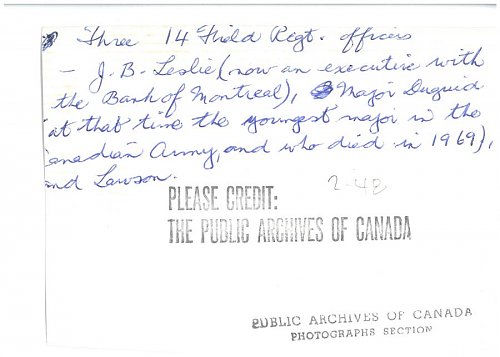 Three 14 Field Regt. officers
- J. B. Leslie (now an executive with
the Bank of Montreal), Major Duguid
at that time the youngest major in the
anadian Army, and who died in 1969),
nd Lawson.
2-4B
PLEASE CREDIT:
THE PUBLIC ARCHIVES OF CANADA
PUBLIC ARCHIVES OF CANADA
PHOTOGRAPHS SECTION